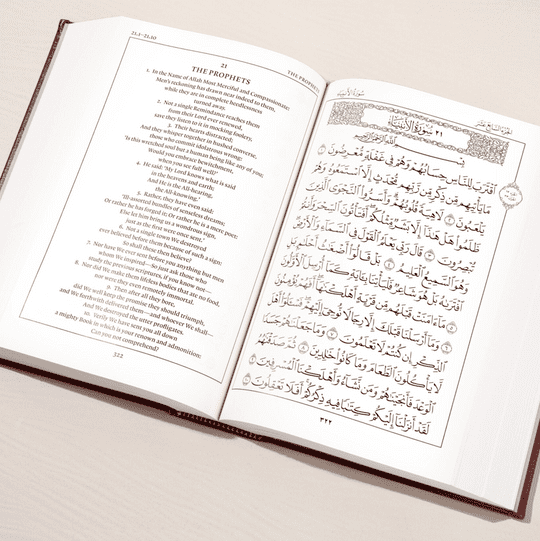 21.1–21.10
THE PROPHETS
21
THE PROPHETS
1. In the Name of Allah Most Merciful and Compassionate:
Men's reckoning has drawn near indeed to them,
while they are in complete heedlessness
turned away.
2. Not a single Remembrance reaches them
from their Lord ever renewed,
save they listen to it in mocking foolery,
3. Their hearts distracted;
And they whisper together in hushed converse,
those who commit idolatrous wrong:
'Is this wretched soul but a human being like any of you;
Would you embrace bewitchment,
when you see full well!'
4. He said: 'My Lord knows what is said
in the heavens and earth;
And He is the All-hearing,
the All-knowing.'
5. Rather, they have even said:
'Ill-assorted bundles of senseless dreams;
Or rather he has forged it; Or rather he is a mere poet:
Else let him bring us a wondrous sign,
just as the first were once sent.'
6. Not a single town We destroyed
ever believed before them because of such a sign:
So shall these then believe?
7. Nor have We ever sent before you anything but men
whom We inspired—So just ask those who
study the previous scriptures, if you know not—
8. Nor did We make them lifeless bodies that ate no food,
nor were they even remotely immortal.
9. Then after all they bore,
did We well keep the promise they should triumph,
and We forthwith delivered them—and whoever We shall—
And We destroyed the utter profligates.
10. Verily We have sent you all down
a mighty Book in which is your renown and admonition:
Can you not comprehend?
322
سُورَةُ الأَنْبِيَاءِ
الجزء السابع عشر
٢١ سُورَةُ الأَنْبِيَاءِ
بِسْمِ اللَّهِ الرَّحْمَٰنِ الرَّحِيمِ
ٱقْتَرَبَ لِلنَّاسِ حِسَابُهُمْ وَهُمْ فِى غَفْلَةٍ مُّعْرِضُونَ ١
مَا يَأْتِيهِم مِّن ذِكْرٍ مِّن رَّبِّهِم مُّحْدَثٍ إِلَّا ٱسْتَمَعُوهُ وَهُمْ
يَلْعَبُونَ ٢ لَاهِيَةً قُلُوبُهُمْ وَأَسَرُّوا۟ ٱلنَّجْوَى ٱلَّذِينَ
ظَلَمُوا۟ هَلْ هَٰذَآ إِلَّا بَشَرٌ مِّثْلُكُمْ أَفَتَأْتُونَ ٱلسِّحْرَ وَأَنتُمْ
تُبْصِرُونَ ٣ قَالَ رَبِّى يَعْلَمُ ٱلْقَوْلَ فِى ٱلسَّمَآءِ وَٱلْأَرْضِ
وَهُوَ ٱلسَّمِيعُ ٱلْعَلِيمُ ٤ بَلْ قَالُوٓا۟ أَضْغَٰثُ أَحْلَٰمٍ بَلِ
ٱفْتَرَىٰهُ بَلْ هُوَ شَاعِرٌ فَلْيَأْتِنَا بِـَٔايَةٍ كَمَآ أُرْسِلَ ٱلْأَوَّلُونَ
٥ مَآ ءَامَنَتْ قَبْلَهُم مِّن قَرْيَةٍ أَهْلَكْنَٰهَآ أَفَهُمْ يُؤْمِنُونَ
٦ وَمَآ أَرْسَلْنَا قَبْلَكَ إِلَّا رِجَالًا نُّوحِىٓ إِلَيْهِمْ فَسْـَٔلُوٓا۟ أَهْلَ
ٱلذِّكْرِ إِن كُنتُمْ لَا تَعْلَمُونَ ٧ وَمَا جَعَلْنَٰهُمْ جَسَدًا
لَّا يَأْكُلُونَ ٱلطَّعَامَ وَمَا كَانُوا۟ خَٰلِدِينَ ٨ ثُمَّ صَدَقْنَٰهُمُ
ٱلْوَعْدَ فَأَنجَيْنَٰهُمْ وَمَن نَّشَآءُ وَأَهْلَكْنَا ٱلْمُسْرِفِينَ ٩
لَقَدْ أَنزَلْنَآ إِلَيْكُمْ كِتَٰبًا فِيهِ ذِكْرُكُمْ أَفَلَا تَعْقِلُونَ ١٠
٣٢٢